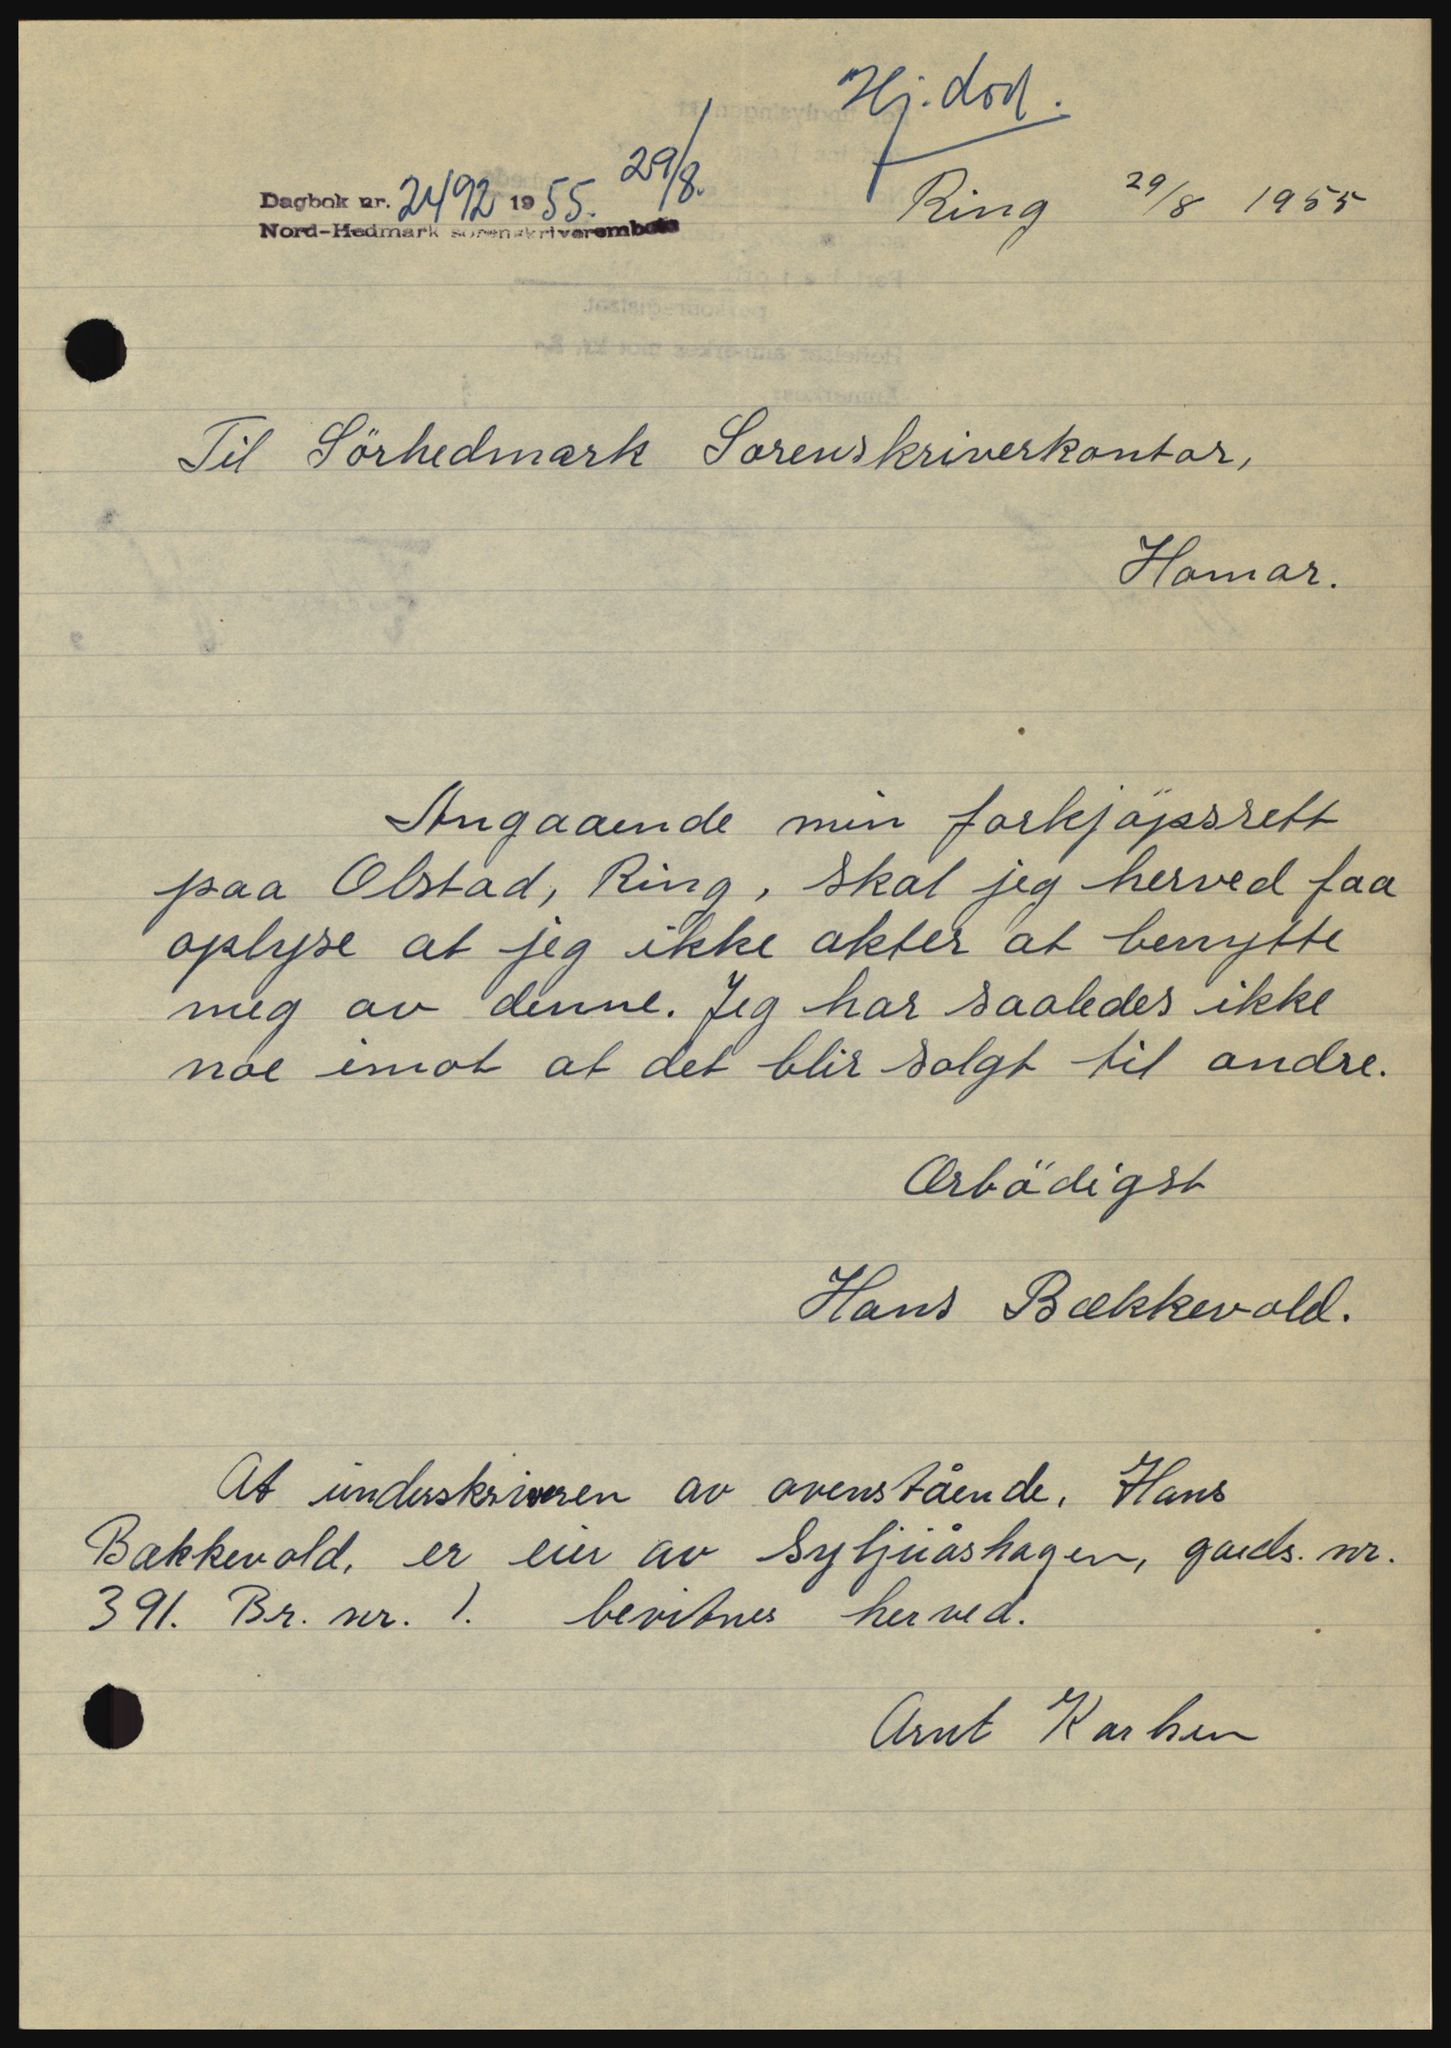 Hj. dod.
Dagbok nr. 2492 1955. 29/8.
Nord-Hedmark sorenskriverembete
Ring 29/8 1955
Til Sörhedmark Sorenskriverkontor,
Hamar.
Angaaende min forkjöpsrett
paa Olstad, Ring, skal jeg herved faa
oplyse at jeg ikke akter at benytte
meg av denne. Jeg har saaledes ikke
noe imot at det blir solgt til andre.
Ærbödigst
Hans Bækkevold.
At underskriveren av ovenstående, Hans
Bækkevold, er eier av Syljuåshagen, gards. nr.
391. Br. nr. 1. bevitnes herved.
Arnt Karlsen